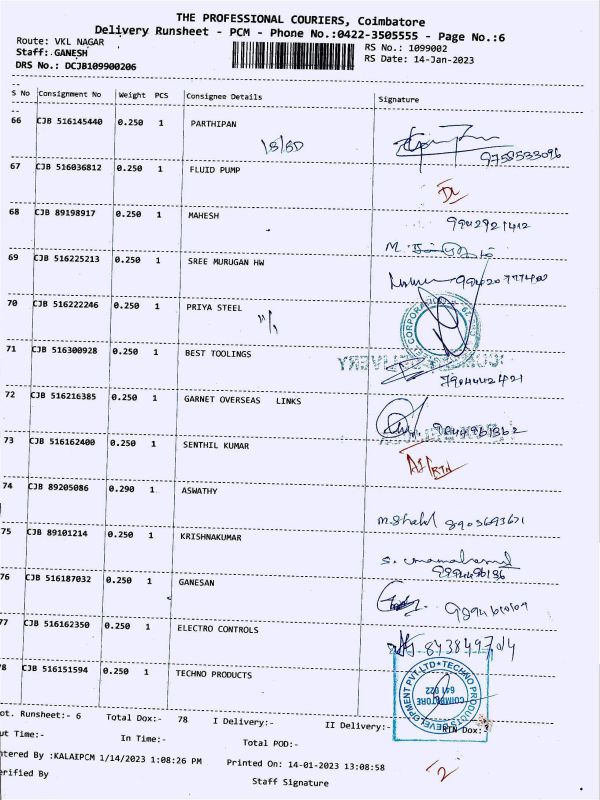 THE PROFESSIONAL COURIERS, Coimbatore
Delivery Runsheet - PCM - Phone No.:0422-3505555 - Page No.:6
Route: VKL NAGAR
RS No.: 1099002
Staff: GANESH
RS Date: 14-Jan-2023
DRS No.: DCJB109900206
S No Consignment No Weight PCS Consignee Details Signature
66 CJB 516145440 0.250 1 PARTHIPAN
9758533096
67 CJB 516036812 0.250 1 FLUID PUMP
DL
68 CJB 89198917 0.250 1 MAHESH
9942921412
69 CJB 516225213 0.250 1 SREE MURUGAN HW
99420777402
70 CJB 516222246 0.250 1 PRIYA STEEL
71 CJB 516300928 0.250 1 BEST TOOLINGS
7904442421
72 CJB 516216385 0.250 1 GARNET OVERSEAS LINKS
73 CJB 516162400 0.250 1 SENTHIL KUMAR
74 CJB 89205086 0.290 1 ASWATHY
8903693671
75 CJB 89101214 0.250 1 KRISHNAKUMAR
76 CJB 516187032 0.250 1 GANESAN
77 CJB 516162350 0.250 1 ELECTRO CONTROLS
8438497014
78 CJB 516151594 0.250 1 TECHNO PRODUCTS
TECHNO PRODUCTS DEVELOPMENT PVT.LTD
COIMBATORE
641 022
ot. Runsheet:- 6 Total Dox:- 78 I Delivery:- II Delivery:- RTN Dox:-
ut Time:- In Time:- Total POD:-
ntered By :KALAIPCM 1/14/2023 1:08:26 PM Printed On: 14-01-2023 13:08:58
erified By Staff Signature